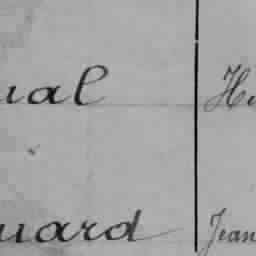 ual Hi
uard Jean